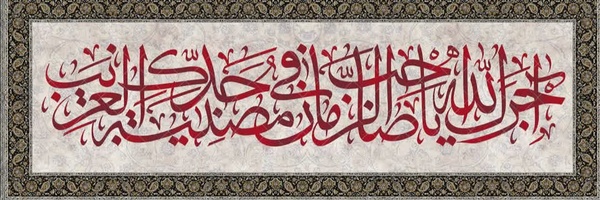 آجرك الله يا صاحب الزمان في مصيبة جدك الغريب